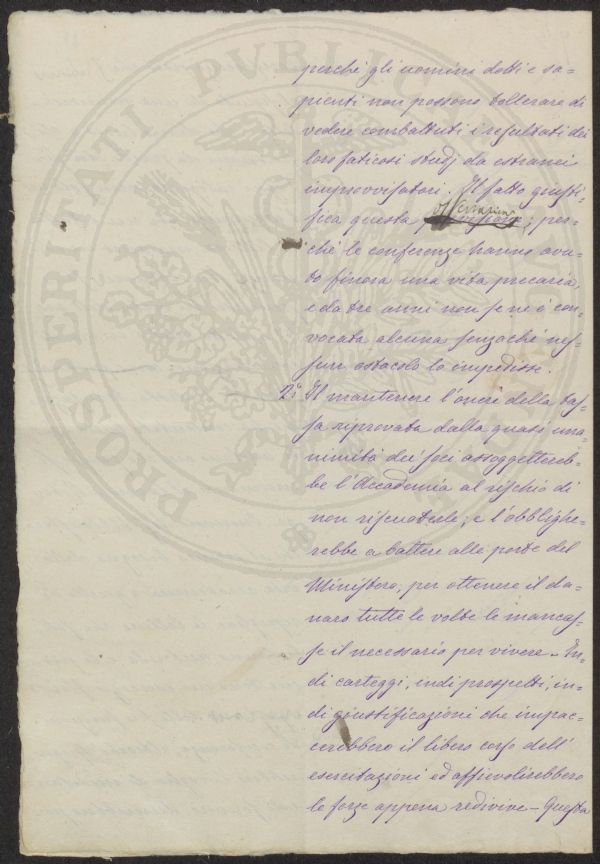 perchè gli uomini dotti e sa=
pienti non possono tollerare di
vedere combattuti i resultati dei
loro faticosi studj da estranei
improvvisatori. Il fatto giusti=
fica questa osservazione; per=
chè le conferenze hanno avu=
to finora una vita precaria,
e da tre anni non se ne è con=
vocata alcuna senzachè nes=
sun ostacolo lo impedisse.
2º. Il mantenere l'onere della tas=
sa riprovata dalla quasi una=
nimità dei soci assoggettereb=
be l'Accademia al rischio di
non riscuoterle; e l'obblighe=
rebbe a battere alle porte del
Ministero, per ottenere il da=
naro tutte le volte le mancas=
se il necessario per vivere. In=
di carteggi, indi prospetti, in=
di giustificazioni che impac=
cerebbero il libero corso dell'
esercitazioni ed affievolirebbero
le forze appena redivive - Questa
PROSPERITATI PVBLICAE